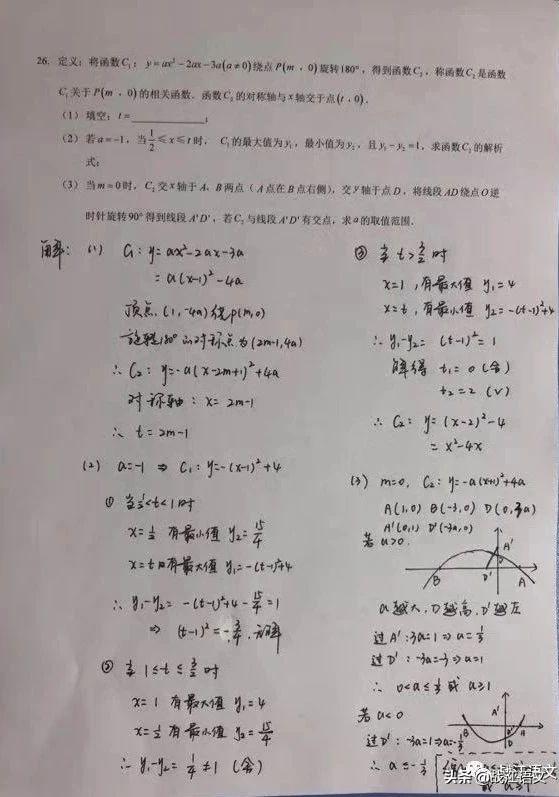 26. 定义:将函数C₁:y=ax²−2ax−3a(a≠0)绕点P(m,0)旋转180°,得到函数C₂,称函数C₂是函数
C₁关于P(m,0)的相关函数.函数C₂的对称轴与x轴交于点(t,0).
(1)填空:t=________;
(2)若a=−1,当1/2≤x≤t时,C₁的最大值为y₁,最小值为y₂,且y₁−y₂=1,求函数C₂的解析
式;
(3)当m=0时,C₂交x轴于A、B两点(A点在B点右侧),交y轴于点D,将线段AD绕点O逆
时针旋转90°得到线段A'D',若C₂与线段A'D'有交点,求a的取值范围.
解:(1) C₁:y=ax²−2ax−3a
=a(x−1)²−4a
顶点(1,−4a)绕P(m,0)
旋转180°的对称点为(2m−1,4a)
∴C₂:y=−a(x−2m+1)²+4a
对称轴:x=2m−1
∴t=2m−1
(2) a=−1 ⇒ C₁:y=−(x−1)²+4
① 当1/2<t<1时
x=1/2 有最小值 y₂=15/4
x=t时有最大值 y₁=−(t−1)²+4
∴y₁−y₂=−(t−1)²+4−15/4=1
⇒ (t−1)²=−3/4,无解
② 当1≤t≤3/2时
x=1 有最大值 y₁=4
x=1/2 有最小值 y₂=15/4
∴y₁−y₂=1/4≠1 (舍)
③ 当t>3/2时
x=1,有最大值 y₁=4
x=t,有最小值 y₂=−(t−1)²+4
∴y₁−y₂=(t−1)²=1
解得 t₁=0(舍)
t₂=2(√)
∴C₂:y=(x−2)²−4
=x²−4x
(3) m=0, C₂:y=−a(x+1)²+4a
A(1,0) B(−3,0) D(0,3a)
A'(0,1) D'(−3a,0)
若a>0.
A'
D
B D' A
a越大,D越高,D'越左
过A':3a=1⇒a=1/3
过D':−3a=−3⇒a=1
∴0<a≤1/3或a≥1
若a<0
A'
B D' A
D
过D':−3a=1⇒a=−1/3
∴a≤−1/3
或a≥1
战江语文
头条@战江语文